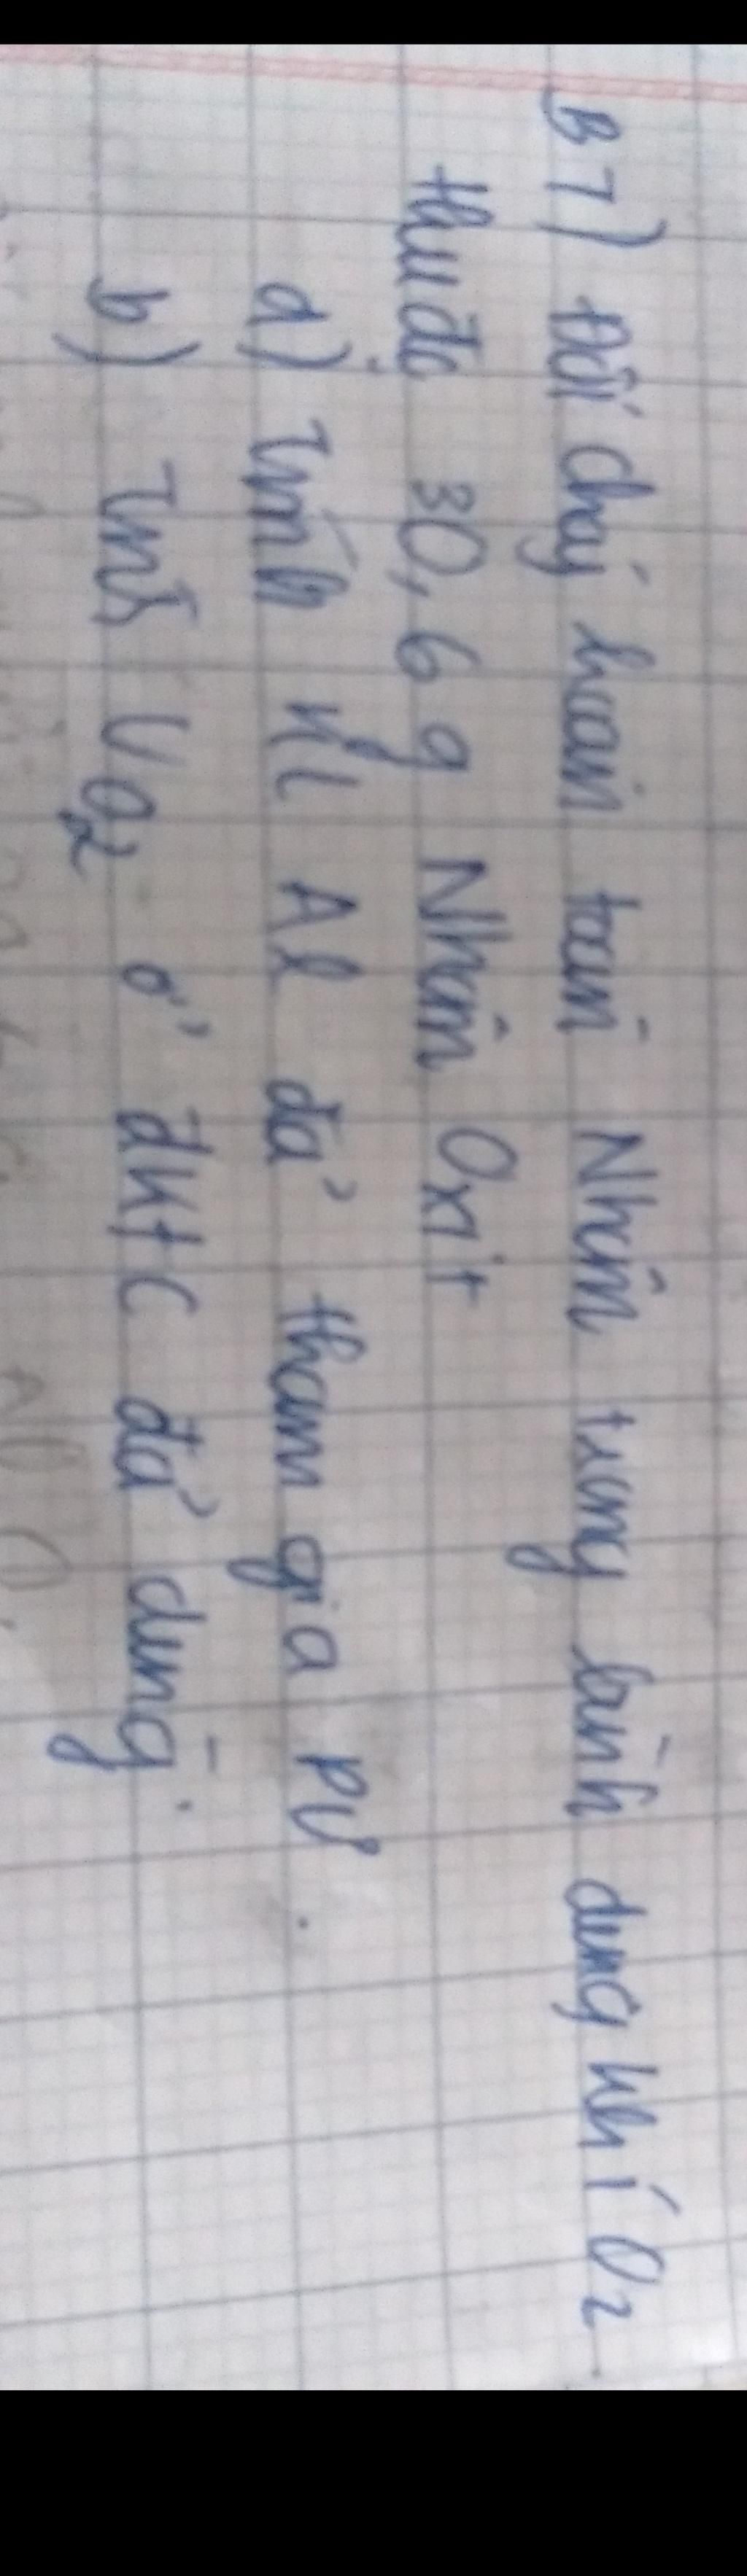 B7) Đốt cháy hoàn toàn Nhôm trong bình đựng khí O2
thu đc 30,6 g Nhôm Oxit
a) Tính KL Al đã tham gia PƯ.
b) Tính VO2 ở đktc đã dùng.